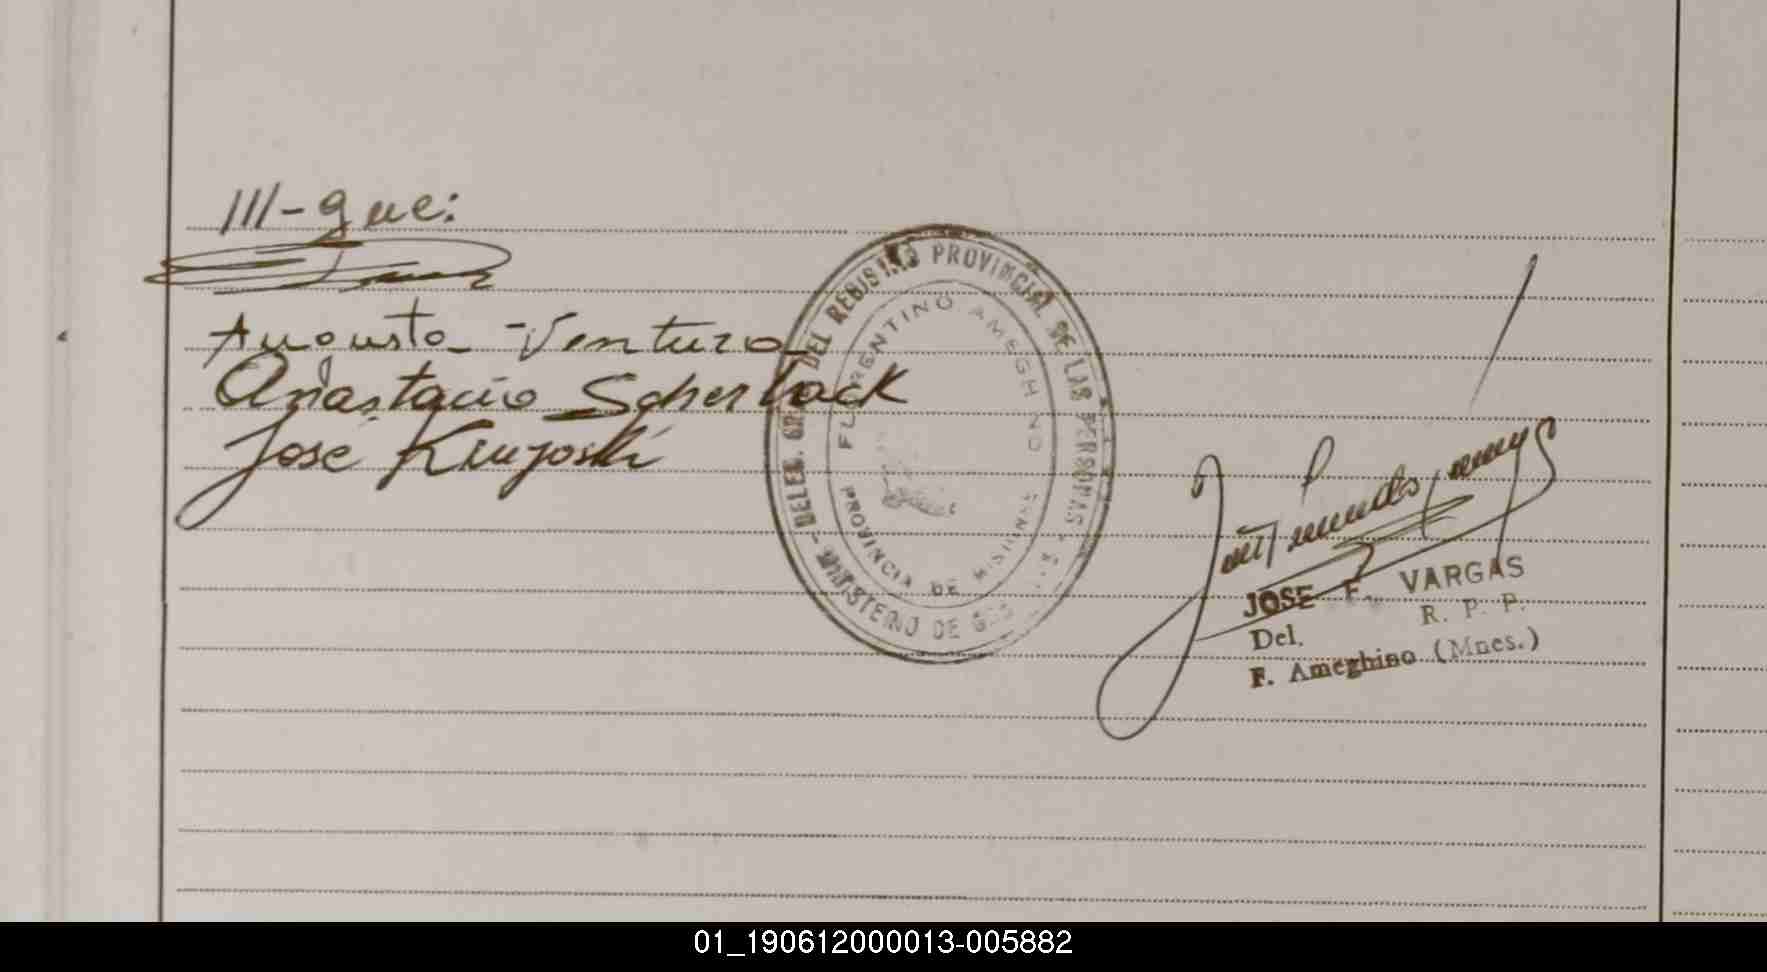 III-que:
Augusto Ventura
Anastacio Scherback
José
DELEG. GRAL DEL REGISTRO PROVINCIAL DE LAS PERSONAS
MINISTERIO DE
FLORENTINO AMEGHINO
PROVINCIA DE MISIONES
JOSE F. VARGAS
R. P. P.
Del.
F. Ameghino (Mnes.)
01_190612000013-005882